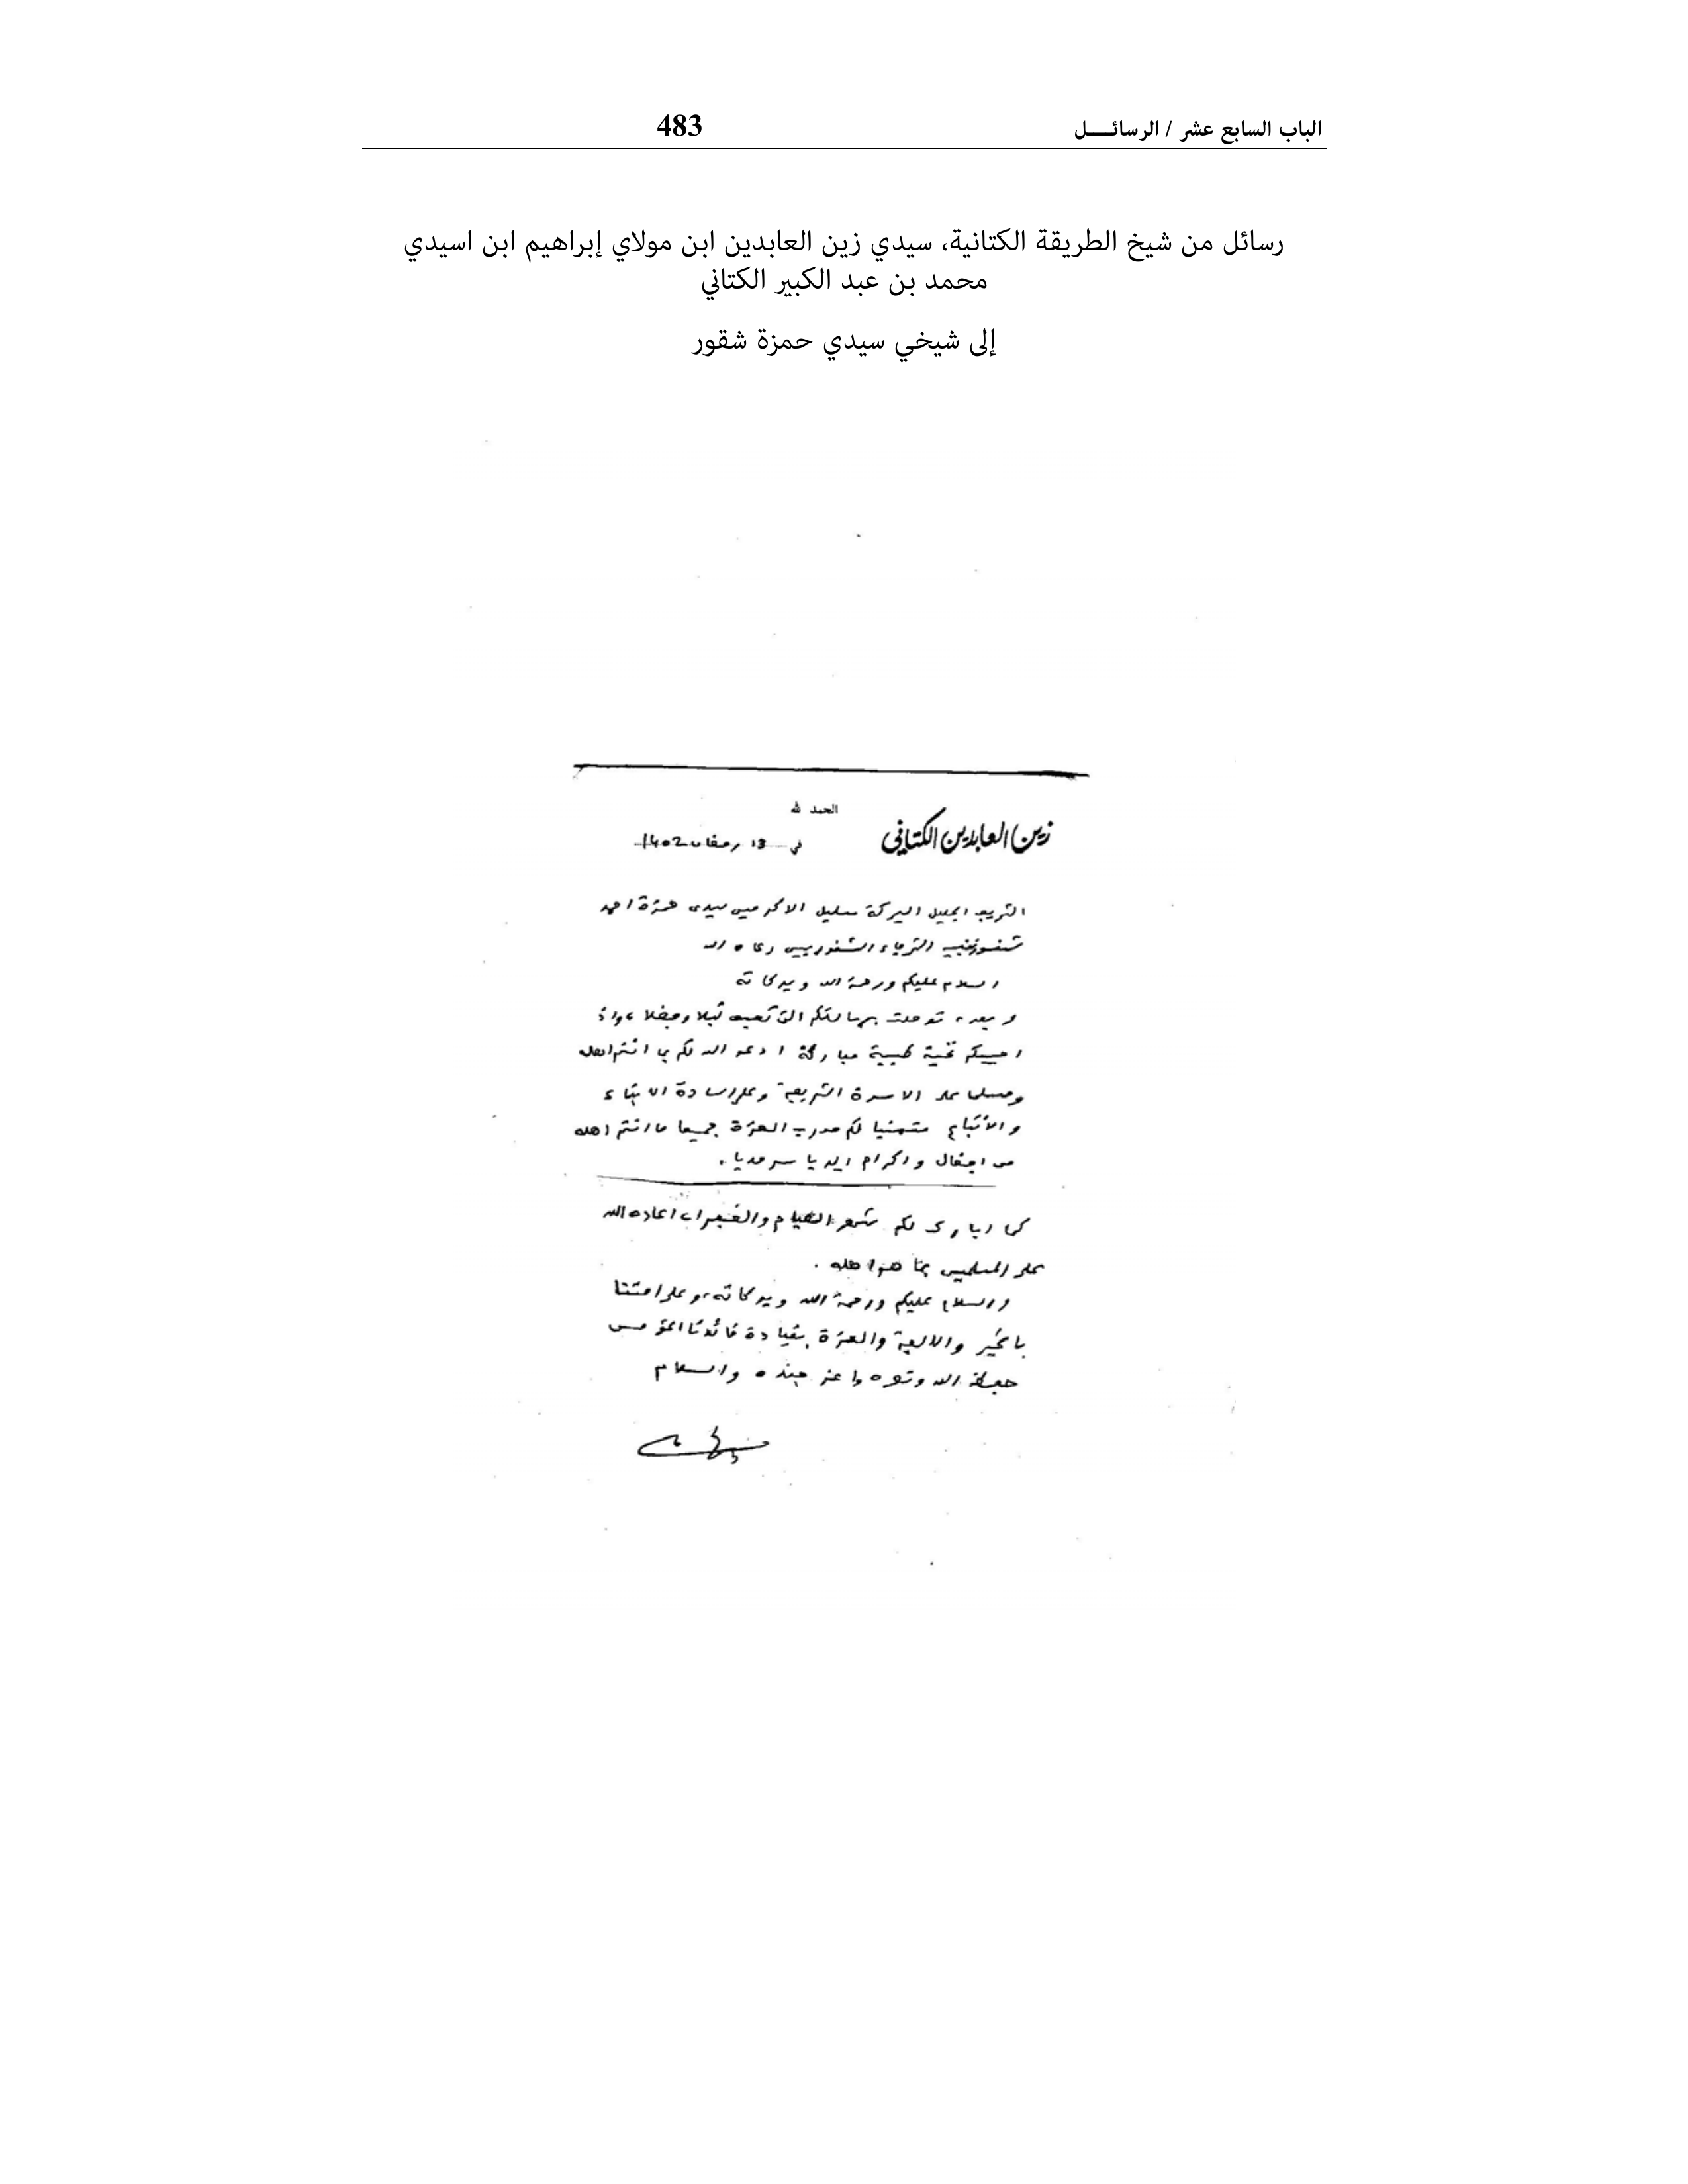 الباب السابع عشر / الرسائـــل 483
رسائل من شيخ الطريقة الكتانية، سيدي زين العابدين ابن مولاي إبراهيم ابن اسيدي
محمد بن عبد الكبير الكتاني
إلى شيخي سيدي حمزة شقور
الحمد لله
زين العابدين الكتاني
في 13 رمضان 1402
الشريف الجليل البركة سليل الاكرمين سيدي حمزة احمد
شقور نقيب الشرفاء الشقوريين رعاه الله
السلام عليكم ورحمة الله وبركاته
وبعد، توصلت برسالتكم التي تفيض نبلا وفضلا، وإذ
احييكم تحية طيبة مباركة ادعو الله لكم بما انتم اهله
ومسلما على الاسرة الشريفة وعلى السادة الابناء
والأتباع متمنيا لكم من رب العزة جميعا ما انتم اهله
من اجلال واكرام ابديا سرمديا.
كما ابارك لكم شهر الصيام والغفران اعاده الله
على المسلمين بما هو اهله.
والسلام عليكم ورحمة الله وبركاته، وعلى امتنا
بالخير والالفة والعزة بقيادة قائدنا المؤمن
حفظه الله وتوجه واعز جنده والسلام